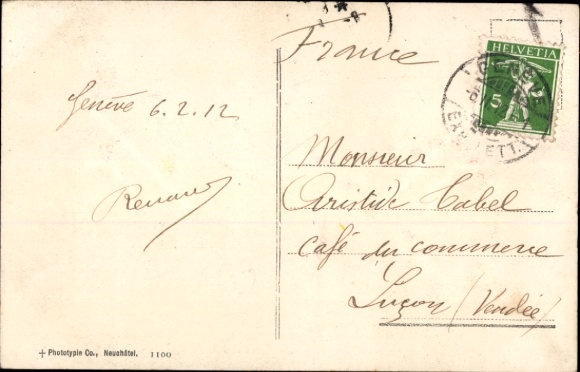 France
HELVETIA
5
GENÈVE
Genève 6.2.12
Monsieur
Aristide Cabel
Café du commerce
Luçon (Vendée)
+ Phototypie Co., Neuchâtel. 1100